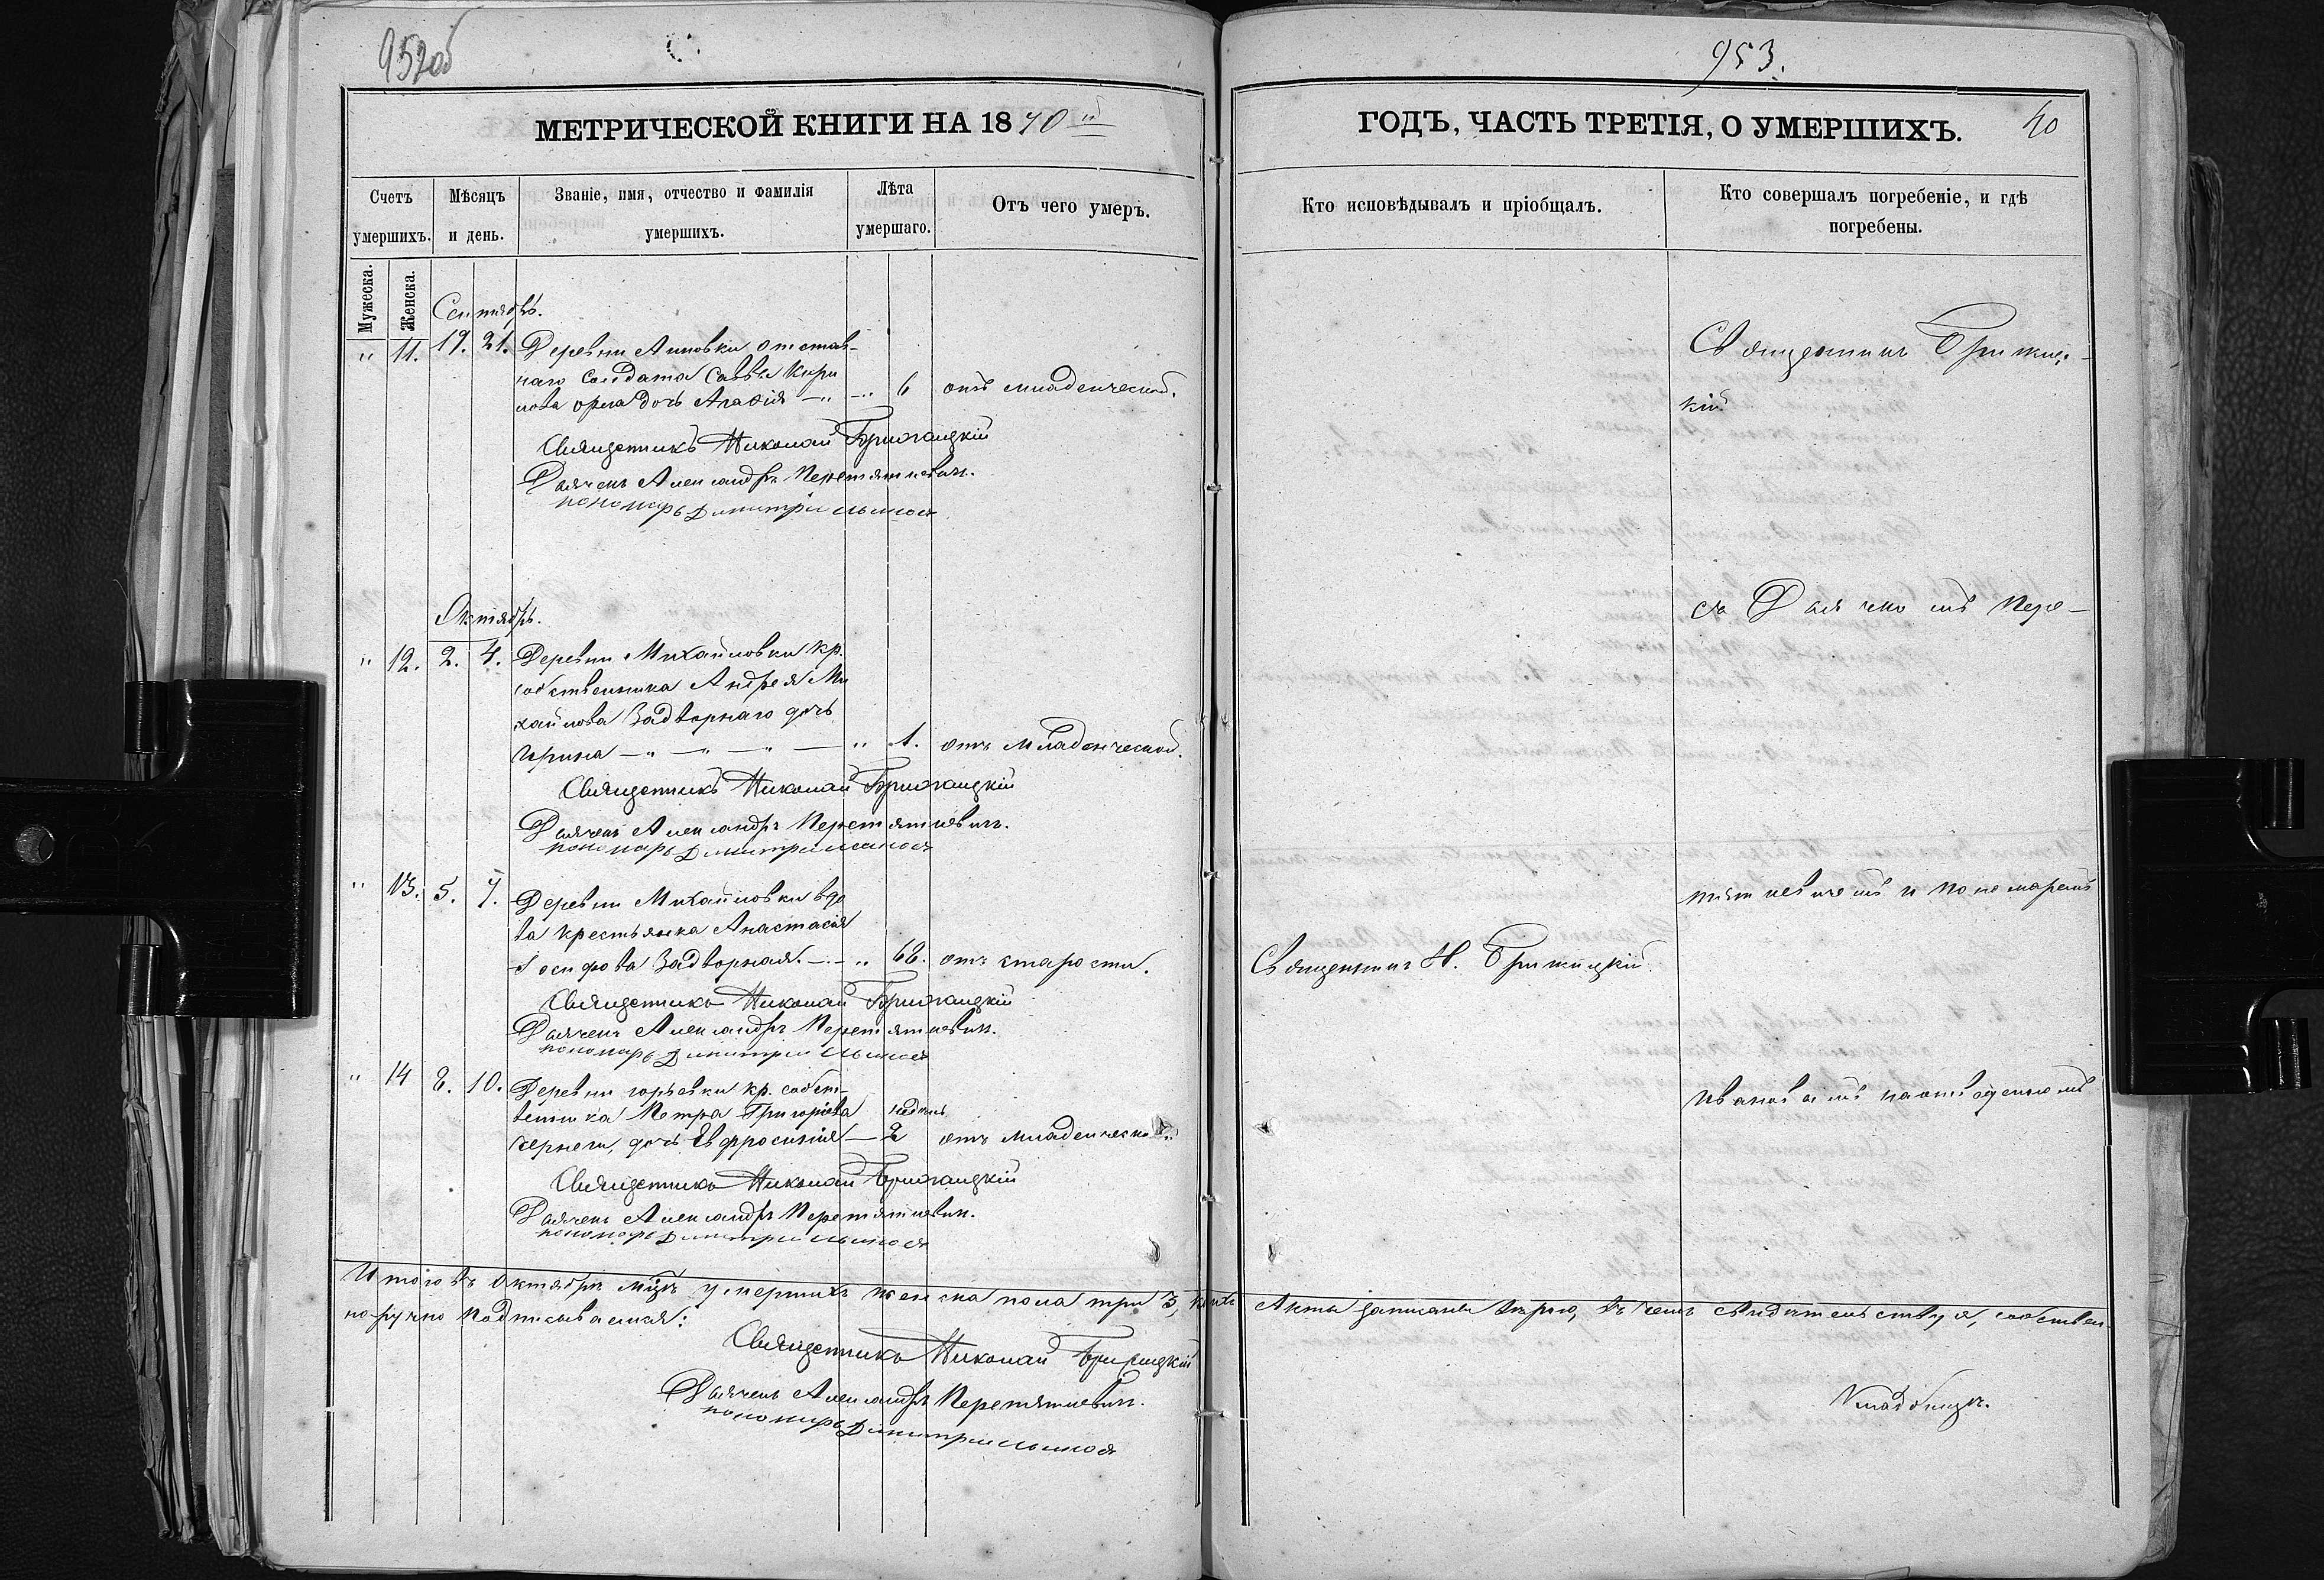 952об
МЕТРИЧЕСКОЙ КНИГИ НА 1870й
Счетъ умершихъ.
Мѣсяцъ и день.
Званіе, имя, отчество и фамилія умершихъ.
Лѣта умершаго.
Отъ чего умеръ.
Мужеска.
Женска.
Сентябрь.
" 11. 19. 21. Деревни Анновки отстав-
наго солдата Саввы Кири
лова дочь Агафія — " — " 6 отъ младенческой.
Священникъ Николай Брижицкій
Дьячекъ Александръ Перетяткевичъ.
пономарь Димитрій
Октябрь.
" 12. 2. 4. Деревни Михайловки кр.
собственника Андрея Ми
хайлова Задворнаго дочь
Ирина — " — " — " — " 1. отъ младенческой.
Священникъ Николай Брижицкій
Дьячекъ Александръ Перетяткевичъ.
пономарь Димитрій
" 13. 5. 7. Деревни Михайловки вдо
ва крестьянка Анастасія
Іосифова Задворная. — " 68. отъ старости.
Священникъ Николай Брижицкій
Дьячекъ Александръ Перетяткевичъ.
пономарь Димитрій
" 14 8. 10. Деревни кр. собст-
венника Петра Григоріева недѣль
дочь Евфросинія — 2 отъ младенческой.
Священникъ Николай Брижицкій
Дьячекъ Александръ Перетяткевичъ.
пономарь Димитрій
Итого въ Октябрѣ мцѣ умершихъ женска пола три 3,
но-ручно подписываемся:
Священникъ Николай Брижицкій
Дьячекъ Александръ Перетяткевичъ.
пономарь Димитрій
953.
ГОДЪ, ЧАСТЬ ТРЕТІЯ, О УМЕРШИХЪ.
40
Кто исповѣдывалъ и пріобщалъ.
Кто совершалъ погребеніе, и гдѣ погребены.
Священникъ Брижиц-
кій
съ Дьячкомъ Пере-
тяткевичемъ и пономаремъ
Священникъ Н. Брижицкій.
на отведенномъ
Акты записаны вѣрно, въ чемъ свидѣтельствуя, собствен-
Кладбищѣ.